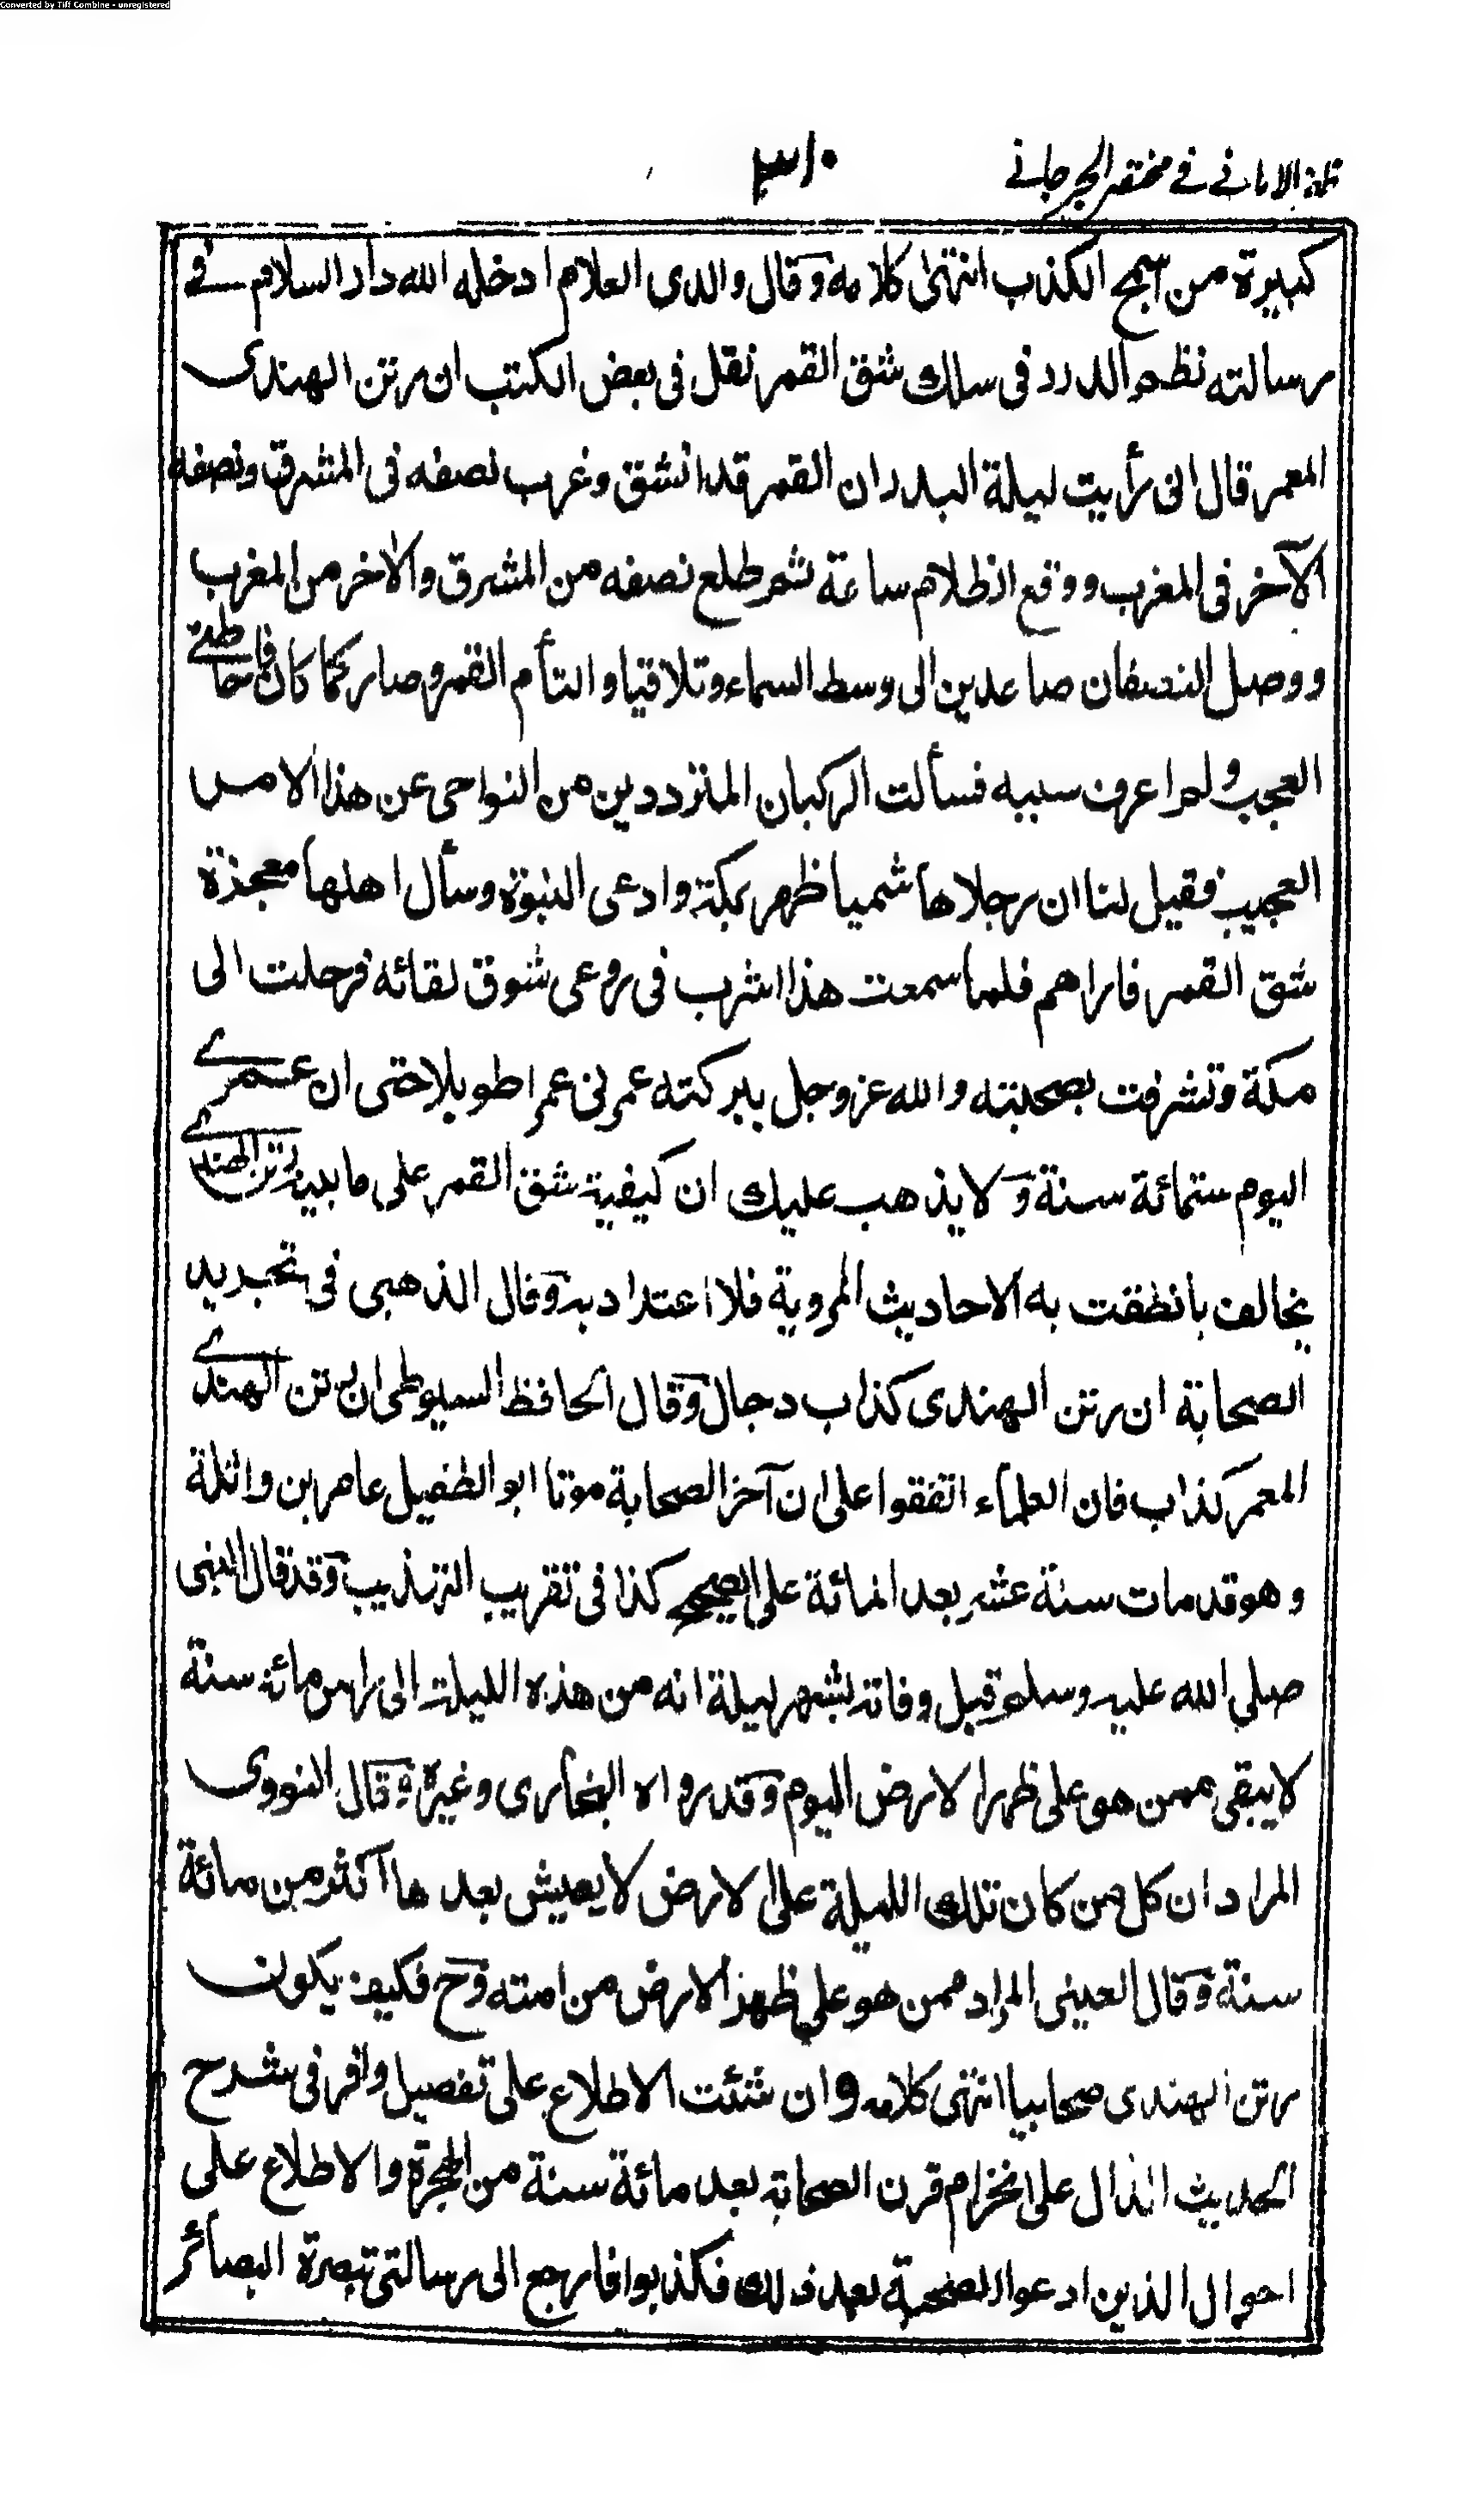 Converted by Tiff Combine - unregistered
ظفر الاماني في مختصر الجرجاني
٣١٠
كبيرة من سمج الكذب انتهى كلامه وقال والدى العلام ادخله الله دار السلام في
رسالته نظم الدرر فى سلك شق القمر نقل فى بعض الكتب ان رتن الهندى
المعمر قال انى رأيت ليلة البدر ان القمر قد انشق وغرب نصفه فى المشرق ونصفه
الآخر فى المغرب ووقع اظلام ساعة ثم طلع نصفه من المشرق والآخر من المغرب
ووصل النصفان صاعدين الى وسط السماء وتلاقيا والتأم القمر وصار كما كان فاحاطنى
العجب ولم اعرف سببه فسألت الركبان المترددين من النواحى عن هذا الامر
العجيب فقيل لنا ان رجلا هاشميا ظهر بمكة وادعى النبوة وسأل اهلها معجزة
شق القمر فاراهم فلما سمعت هذا اشرب فى روعى شوق لقائه فرحلت الى
مكة وتشرفت بصحبته والله عز وجل ببركته عمرنى عمرا طويلا حتى ان عمرى
اليوم ستمائة سنة ولا يذهب عليك ان كيفية شق القمر على ما بينه رتن الهندى
يخالف ما نطقت به الاحاديث المروية فلا اعتداد به وقال الذهبى فى تجريد
الصحابة ان رتن الهندى كذاب دجال وقال الحافظ السيوطى ان رتن الهندى
المعمر كذاب فان العلماء اتفقوا على ان آخر الصحابة موتا ابو الطفيل عامر بن واثلة
وهو قد مات سنة عشر بعد المائة على الصحيح كذا فى تقريب التهذيب وقد قال النبى
صلى الله عليه وسلم قبل وفاته بشهر ليلة انه من هذه الليلة الى راس مائة سنة
لا يبقى ممن هو على ظهر الارض اليوم وقد رواه البخارى وغيره وقال النووى
المراد ان كل من كان تلك الليلة على الارض لا يعيش بعدها اكثر من مائة
سنة وقال العينى المراد ممن هو على ظهر الارض من امته وح فكيف يكون
رتن الهندى صحابيا انتهى كلامه وان شئت الاطلاع على تفصيل وافر فى شرح
الحديث الدال على انخرام قرن الصحابة بعد مائة سنة من الهجرة والاطلاع على
احوال الذين ادعوا الصحبة بعد ذلك فكذبوا فارجع الى رسالتى تبصرة البصائر